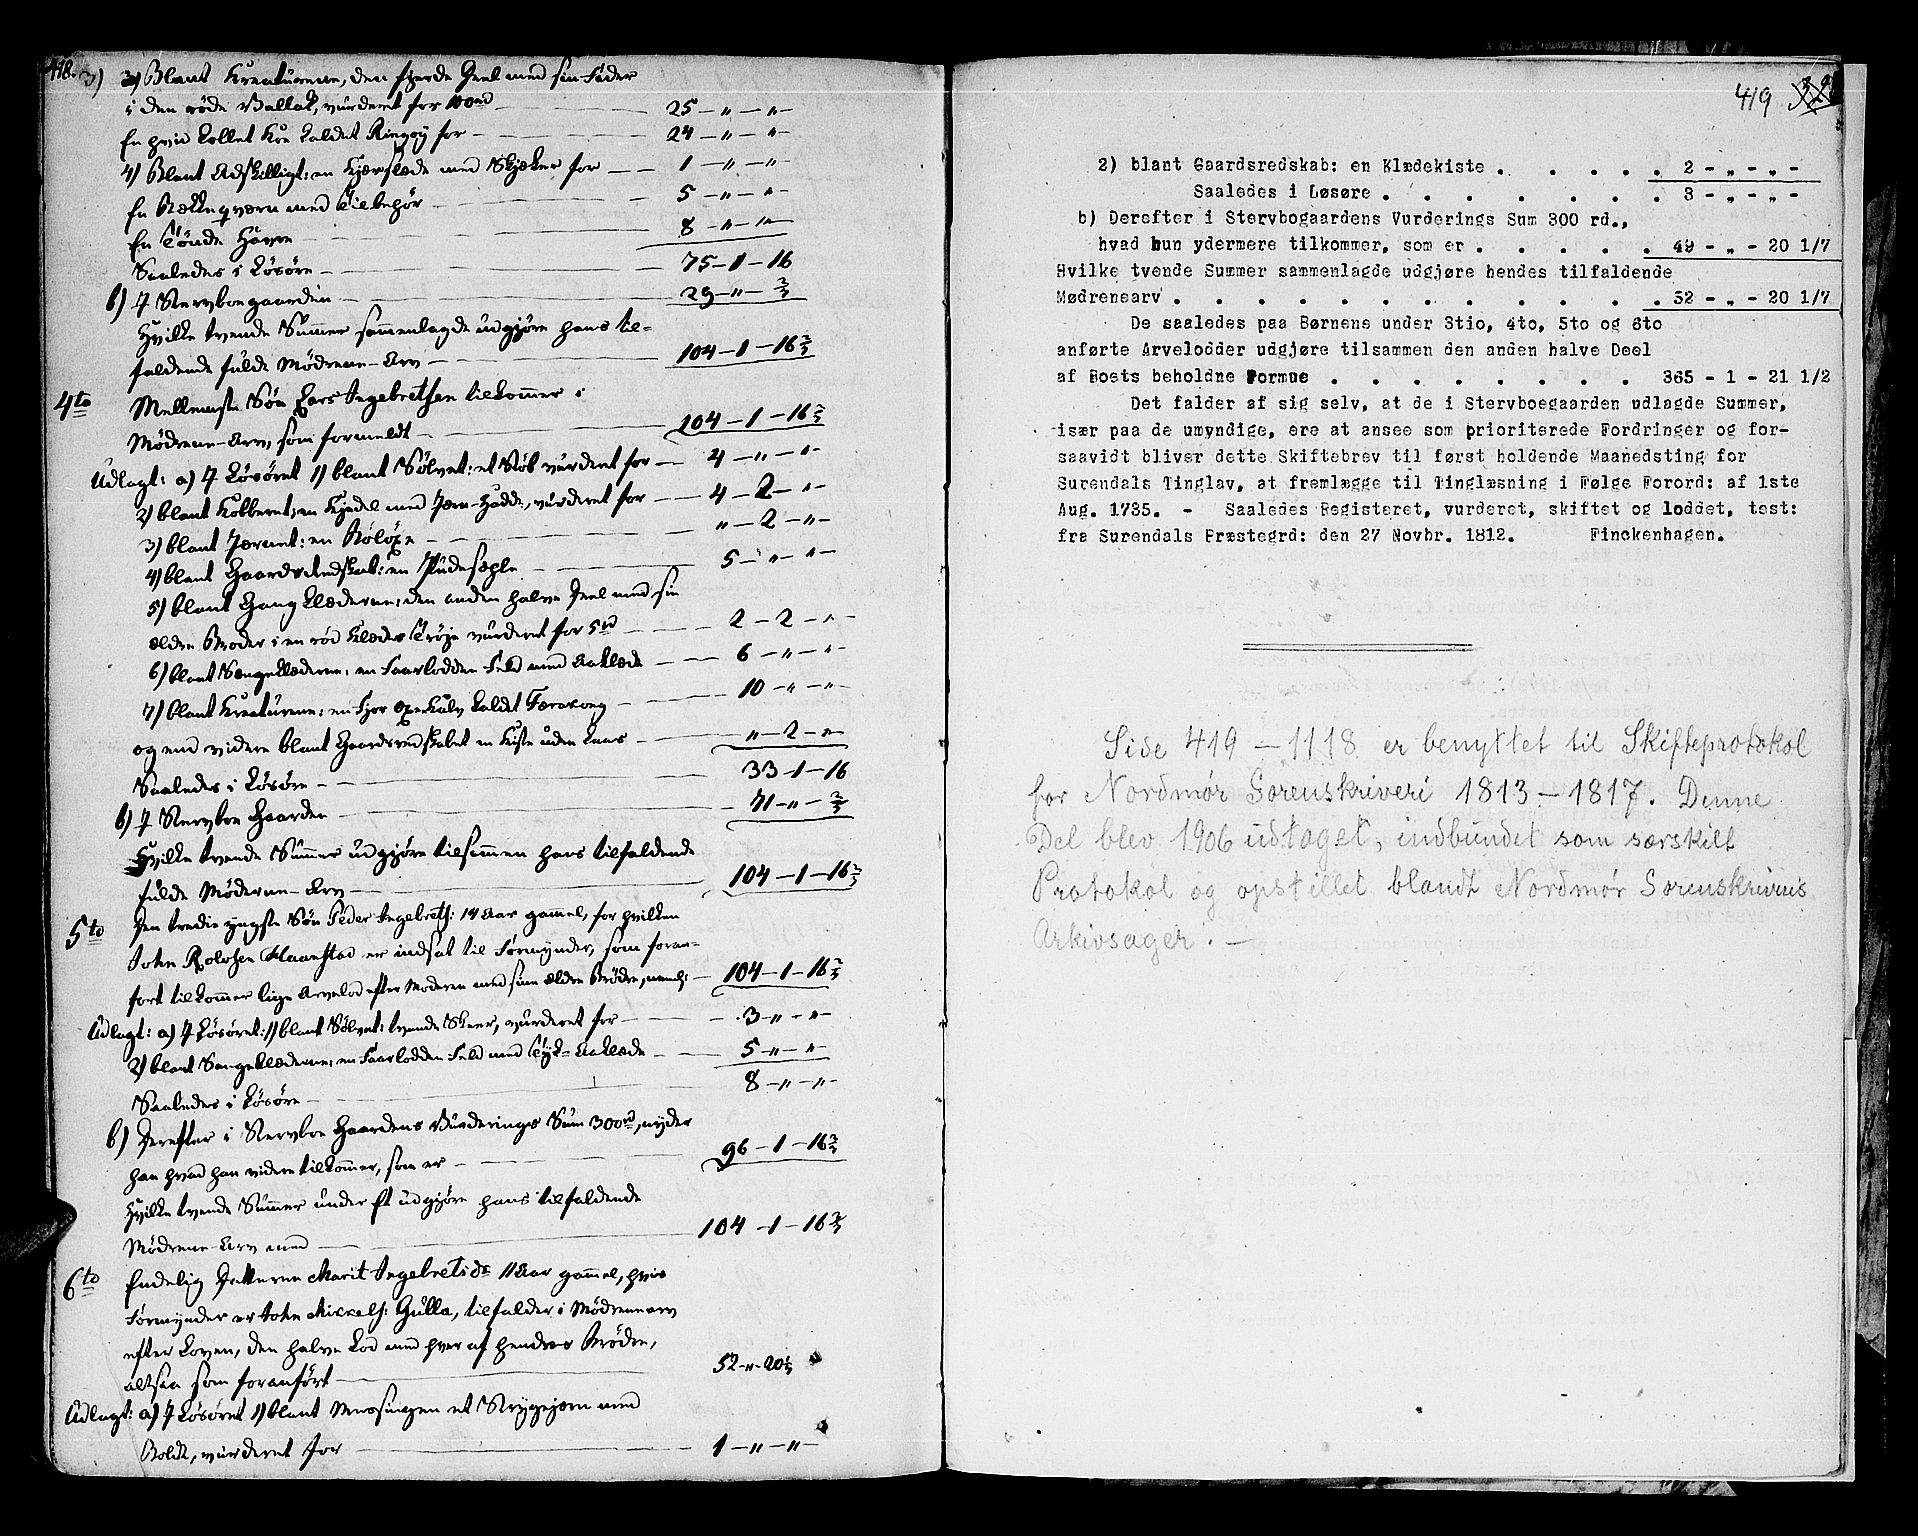 418.
3) Blant Kreaturene, den fjerde Deel med sin Fader
i den røde Vallak, vurderet for 100 rd — 25 — „ — „ —
En hvid kollet Koe kaldet Ringøy for — 24 — „ — „ —
4) Blant Adskilligt: en Kjørslæde med Skjæker for — 1 — „ — „ —
En Rækkeqværn med Tilbehør — 5 — „ — „ —
En Tønde Havre — 8 — „ — „ —
Saaledes i Løsøre — 75 — 1 — 16
b) I Stervboegaarden — 29 — „ — 2/3
Hvilke tvende Summer sammenlagde udgjøre hans til=
faldende fulde Mødrene-Arv — 104 — 1 — 16 2/3
4to Mellemste Søn Lars Ingebretsen tilkommer i
Mødrene-Arv, som formeldt — 104 — 1 — 16 2/3
Udlagt: a) I Løsøret 1) blant Sølvet: et Støb vurderet for — 4 — „ — „ —
2) blant Kobberet: en Kjedel med Jærn-Hadde, vurderet for — 4 — 2 — „ —
3) blant Jærnet: en Boløxe — „ — 2 — „ —
4) blant Gaards Redskab: en — 5 — „ — „ —
5) blant Gangklæderne: den anden halve Deel med sin
ældre Broder i en rød Klædes Trøje vurderet for 5 rd — 2 — 2 — „ —
6) blant Sengeklæderne: en Faarlodden Feld med Aaklæde — 6 — „ — „ —
7) blant Kreaturene: en Fjor Oxe Kalv kaldet — 10 — „ — „ —
og end videre blant Gaardsredskabet en Kiste uden Laas — „ — 2 — „ —
Saaledes i Løsøre — 33 — 1 — 16
b) I Stervboe Gaarden — 71 — „ — 2/3
Hvilke tvende Summer udgjøre tilsammen hans tilfaldende
fulde Møderne-Arv — 104 — 1 — 16 2/3
5to Den tredie yngste Søn Peder Ingebrets: 14 Aar gammel, for hvilken
John Rolvsen Haanstad er indsat til Formynder, som foran=
fort tilkommer liige Arvelod efter Moderen med sine ældre Brødre, neml: — 104 — 1 — 16 2/3
Udlagt: a) I Løsøret: 1) blant Sølvet: tvende Skeer, vurderet for — 3 — „ — „ —
2) blant Sengeklæderne: en Faarlodden Feld med Tyk-Aaklæde — 5 — „ — „ —
Saaledes i Løsøre — 8 — „ — „ —
b) Derefter i Stervboe Gaardens Vurderings Sum 300 rd, nyder
han hvad han videre tilkommer, som er — 96 — 1 — 16 2/3
Hvilke tvende Summer under Et udgjøre hans tilfaldende
Mødrene-Arv med — 104 — 1 — 16 2/3
6to Endelig Datteren Marit Ingebretsdr 11 Aar gammel, hvis
Formynder er John Mikkels: Gulla, tilfalder i Mødrenearv
efter Loven, den halve Lod med hver af hendes Brødre,
altsaa som foranført — 52 — „ — 20 1/3
Udlagt: a) I Løsøret 1) blant Messingen et Strygejern med
Boldt, vurderet for — 1 — „ — „ —
419
2) blant Gaardsredskab: en Klædekiste . . . . . . 2 - „ - „ -
Saaledes i Løsøre . . . . . . . . . 3 - „ - „ -
b) Derefter i Stervbogaardens Vurderings Sum 300 rd.,
hvad hun ydermere tilkommer, som er . . . . . . 49 - „ - 20 1/7
Hvilke tvende Summer sammenlagde udgjøre hendes tilfaldende
Mødrenearv . . . . . . . . . . . . . 52 - „ - 20 1/7
De saaledes paa Børnene under 3tio, 4to, 5to og 6to
anførte Arvelodder udgjøre tilsammen den anden halve Deel
af Boets beholdne Formue . . . . . . . . 365 - 1 - 21 1/2
Det falder af sig selv, at de i Stervboegaarden udlagde Summer,
især paa de umyndige, ere at ansee som prioriterede Fordringer og for-
saavidt bliver dette Skiftebrev til først holdende Maanedsting for
Surendals Tinglav, at fremlægge til Tinglæsning i Følge Forord: af 1ste
Aug. 1735. - Saaledes Registeret, vurderet, skiftet og loddet, test:
fra Surendals Præstegrd: den 27 Novbr. 1812. Finckenhagen.
Side 419 — 1118 er benyttet til Skifteprotokol
for Nordmør Sorenskriveri 1813 — 1817. Denne
Del blev 1906 udtaget, indbundet som særskilt
Protokol og opstillet blandt Nordmør Sorenskriveris
Arkivsager. —